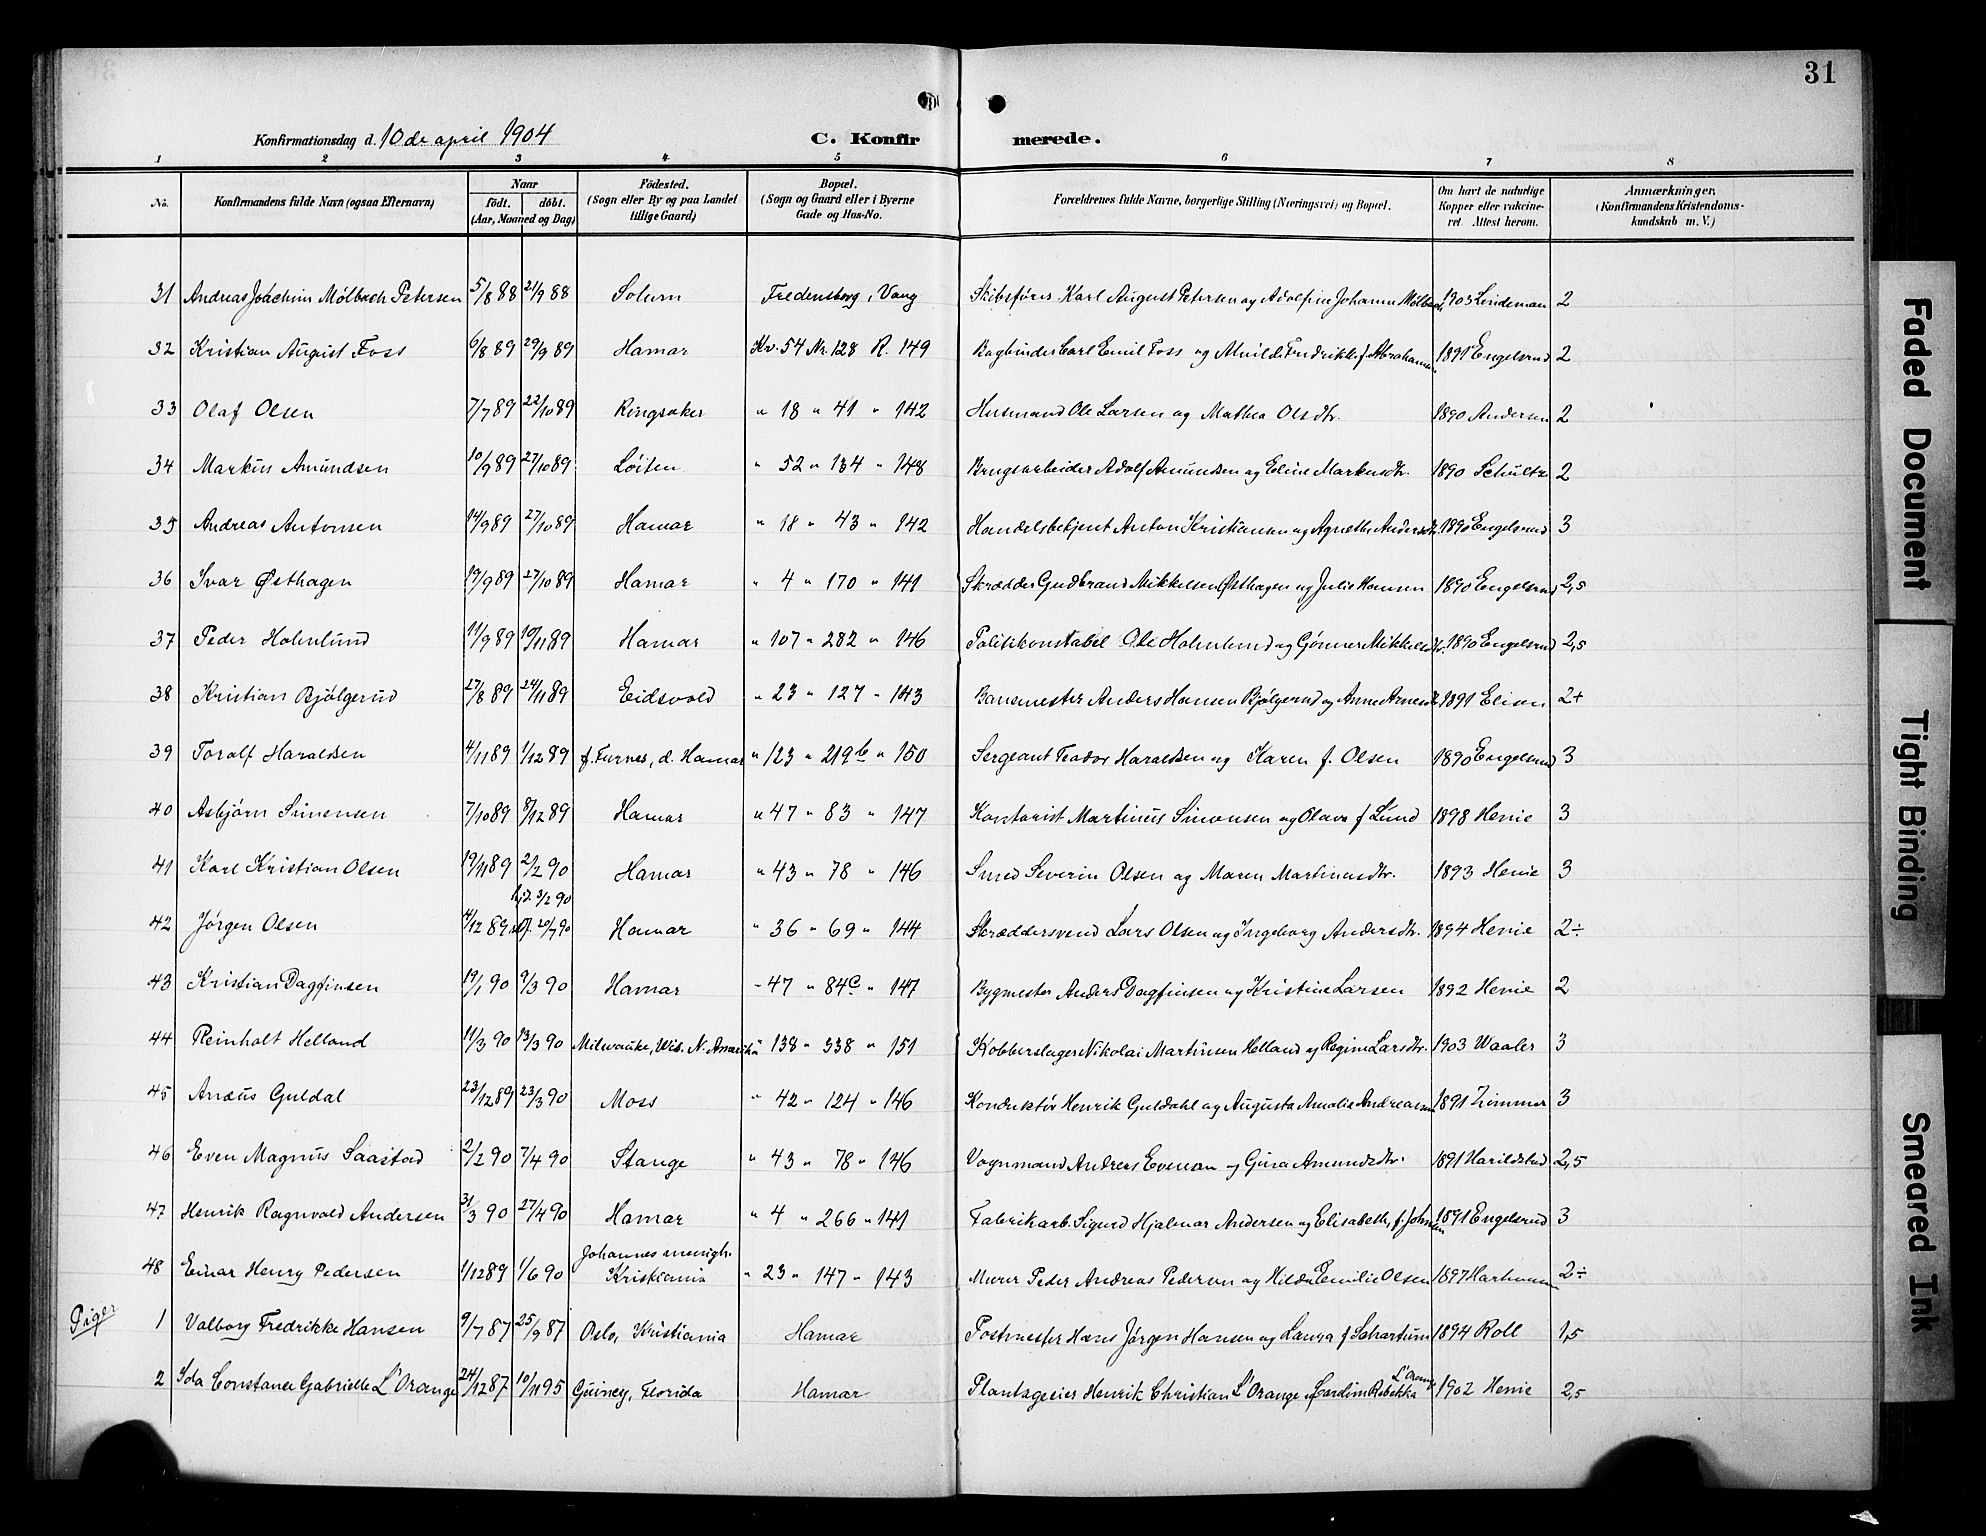 31
Konfirmationsdag d. 10de april 1904 C. Konfirmerede.
1 2 3 4 5 6 7 8
No. Konfirmandens fulde Navn (ogsaa Efternavn) Naar født. døbt. (Aar, Moaned og Dag) Fødested. (Sogn eller By og paa Landet tillige Gaard) Bopæl. (Sogn og Gaard eller i Byerne Gade og Hus-No. Forældrenes fulde Navne, borgerlige Stilling (Næringsvei) og Bopæl. Om havt de naturlige Kopper eller vakcineret. Attest herom. Anmærkninger. (Konfirmandens Kristendomskundskab m. V.)
31 Andreas Joachim Mölbach Petersen 5/8 88 21/9 88 Solum Fredensborg, Vang Skibsfører Karl August Petersen og Adolfine Johanne Mölbach 1903 Lindeman 2
32 Kristian August Foss 6/8 89 29/9 89 Hamar Kv. 54 Nr. 128 R. 149 Bogbinder Carl Emil Foss og Alvilde Fredrikke f. Abrahamsen 1891 Engelsrud 2
33 Olaf Olsen 7/7 89 22/10 89 Ringsaker " 18 " 41 " 142 Husmand Ole Larsen og Mathea Olsdtr. 1890 Andersen 2
34 Markus Amundsen 10/9 89 27/10 89 Löiten " 52 " 134 " 148 Brugsarbeider Adolf Amundsen og Eline Markusdtr. 1890 Schultz 2
35 Andreas Antonsen 14/9 89 27/10 89 Hamar " 18 " 43 " 142 Handelsbetjent Anton Kristiansen og Agnethe Andersdtr. 1890 Engelsrud 3
36 Ivar Østhagen 19/9 89 27/10 89 Hamar " 4 " 170 " 141 Skrædder Gudbrand Mikkelsen Østhagen og Julie Hansen 1890 Engelsrud 2,5
37 Peder Holmlund 11/9 89 10/11 89 Hamar " 107 " 282 " 146 Politikonstabel Ole Holmlund og Gönner Mikkelsdtr. 1890 Engelsrud 2,5
38 Kristian Bjölgerud 27/8 89 24/11 89 Eidsvold " 23 " 127 " 143 Banemester Anders Hansen Bjölgerud og Anne Arnesdtr. 1891 Elisen 2+
39 Toralf Haraldsen 4/11 89 1/12 89 f. Furnes, d. Hamar " 123 " 219b " 150 Sergeant Teodor Haraldsen og Karen f. Olsen 1890 Engelsrud 3
40 Asbjörn Simensen 7/10 89 8/12 89 Hamar " 47 " 83 " 147 Kontorist Martinus Simonsen og Olava f Lund 1898 Henie 3
41 Karl Kristian Olsen 19/11 89 2/2 90 Hamar " 43 " 78 " 146 Smed Severin Olsen og Maren Martinusdtr. 1893 Henie 3
42 Jörgen Olsen 4/12 89 hjd. 3/2 90 stf. 20/7 90 Hamar " 36 " 69 " 144 Skræddersvend Lars Olsen og Ingeborg Andersdtr. 1894 Henie 2÷
43 Kristian Dagfinsen 19/1 90 9/3 90 Hamar " 47 " 84c " 147 Bygmester Anders Dagfinsen og Kristine Larsen 1892 Henie 2
44 Reinholt Helland 11/3 90 13/3 90 Milwauke, Wis. N. Amerika " 138 " 338 " 151 Kobberslager Nikolai Martinsen Helland og Regine Larsdtr. 1903 Waaler 3
45 Anæus Guldal 23/12 89 23/3 90 Moss " 42 " 124 " 146 Konduktör Henrik Guldahl og Augusta Amalie Andreassen 1891 Zimmer 3
46 Even Magnus Saastad 2/2 90 7/4 90 Stange " 43 " 78 " 146 Vognmand Andreas Evensen og Gina Amundsdtr. 1891 Harildstad 2,5
47 Henrik Ragnvald Andersen 31/3 90 27/4 90 Hamar " 4 " 266 " 141 Fabrikarb. Sigurd Hjalmar Andersen og Elisabeth, f. Johnsen 1891 Engelsrud 3
48 Einar Henry Pedersen 1/12 89 1/6 90 Johannes menigh. Kristiania " 23 " 147 " 143 Murer Peder Andreas Pedersen og Hilda Emilie Olsen 1897 Hartmann 2÷
Piger 1 Valborg Fredrikke Hansen 9/7 87 25/9 87 Oslo, Kristiania Hamar Postmester Hans Jörgen Hansen og Laura f Schartum 1894 Roll 1,5
2 Ida Constance Gabrielle L'Orange 24/12 87 10/11 95 Guiney, Florida Hamar Plantageeier Henrik Christian L'Orange og Cardine Rebekka L'Orange 1902 Henie 2,5
Faded Document
Tight Binding
Smeared Ink